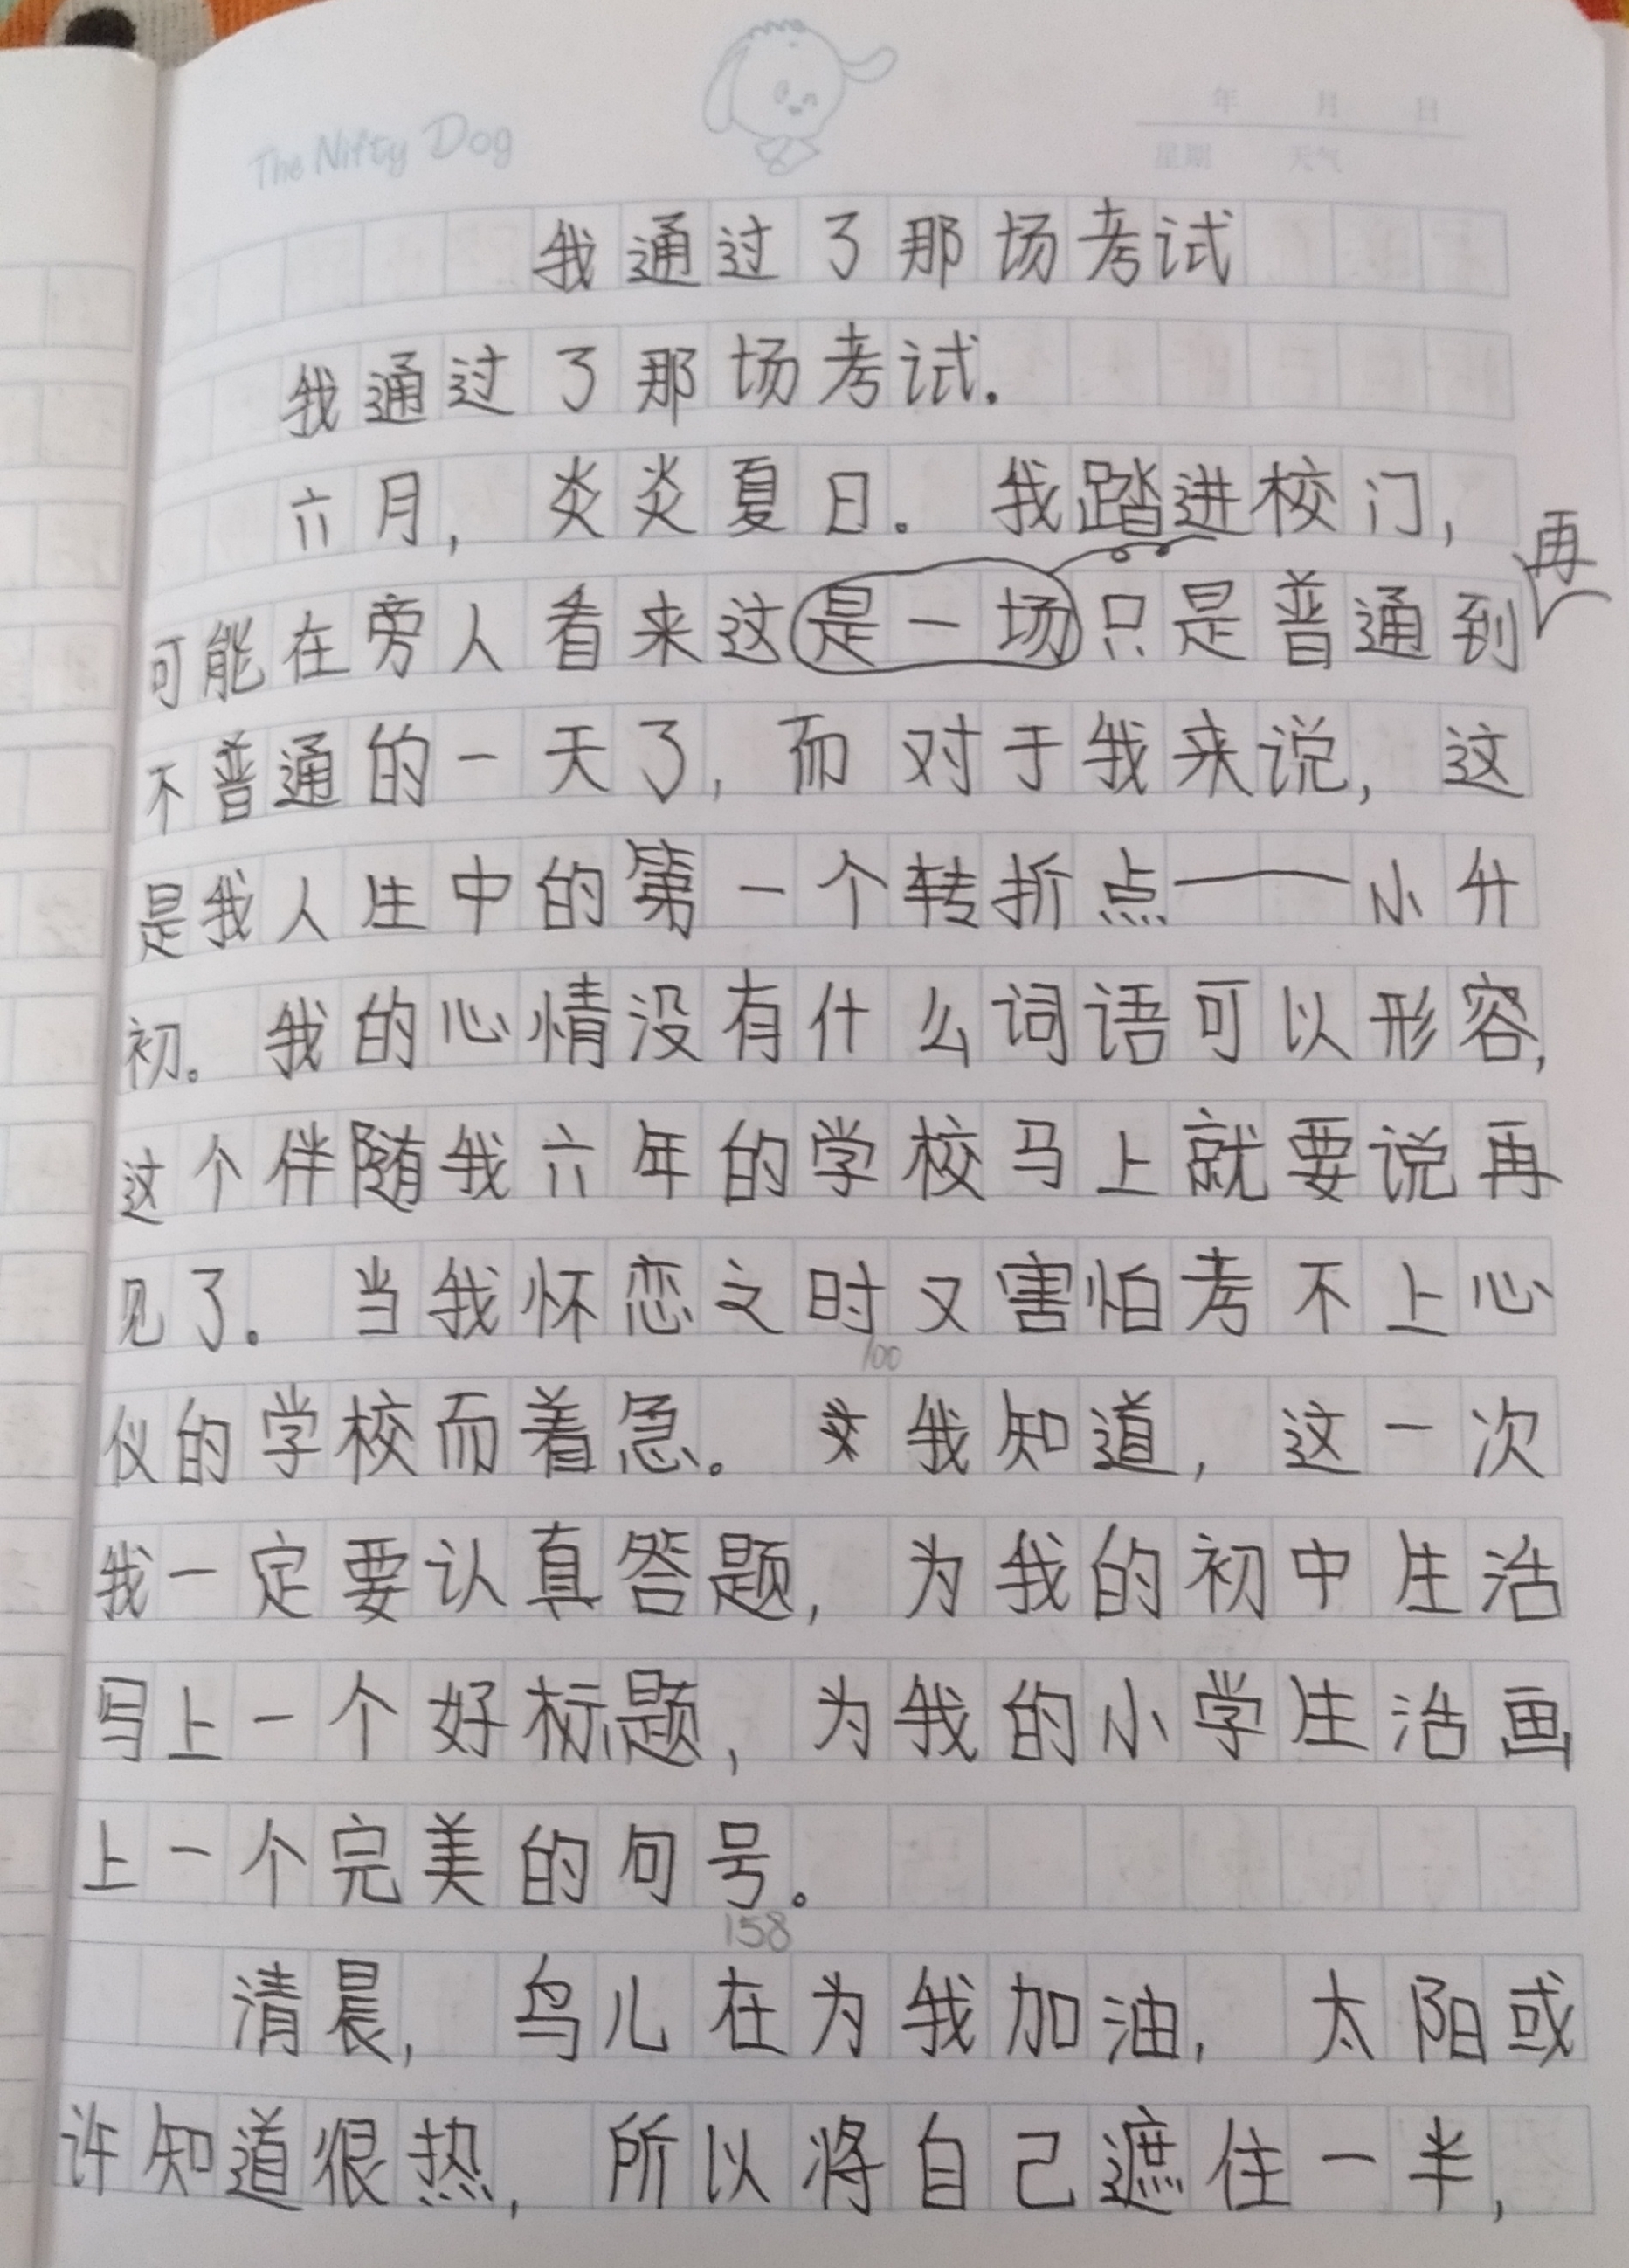 The Nifty Dog
年 月 日
星期 天气
我通过了那场考试
我通过了那场考试.
六月，炎炎夏日。我踏进校门，
再
可能在旁人看来这是一场只是普通到
不普通的一天了，而对于我来说，这
是我人生中的第一个转折点——小升
初。我的心情没有什么词语可以形容，
这个伴随我六年的学校马上就要说再
见了。当我怀恋之时又害怕考不上心
100
仪的学校而着急。我知道，这一次
我一定要认真答题，为我的初中生活
写上一个好标题，为我的小学生活画
上一个完美的句号。
158
清晨，鸟儿在为我加油，太阳或
许知道很热，所以将自己遮住一半，